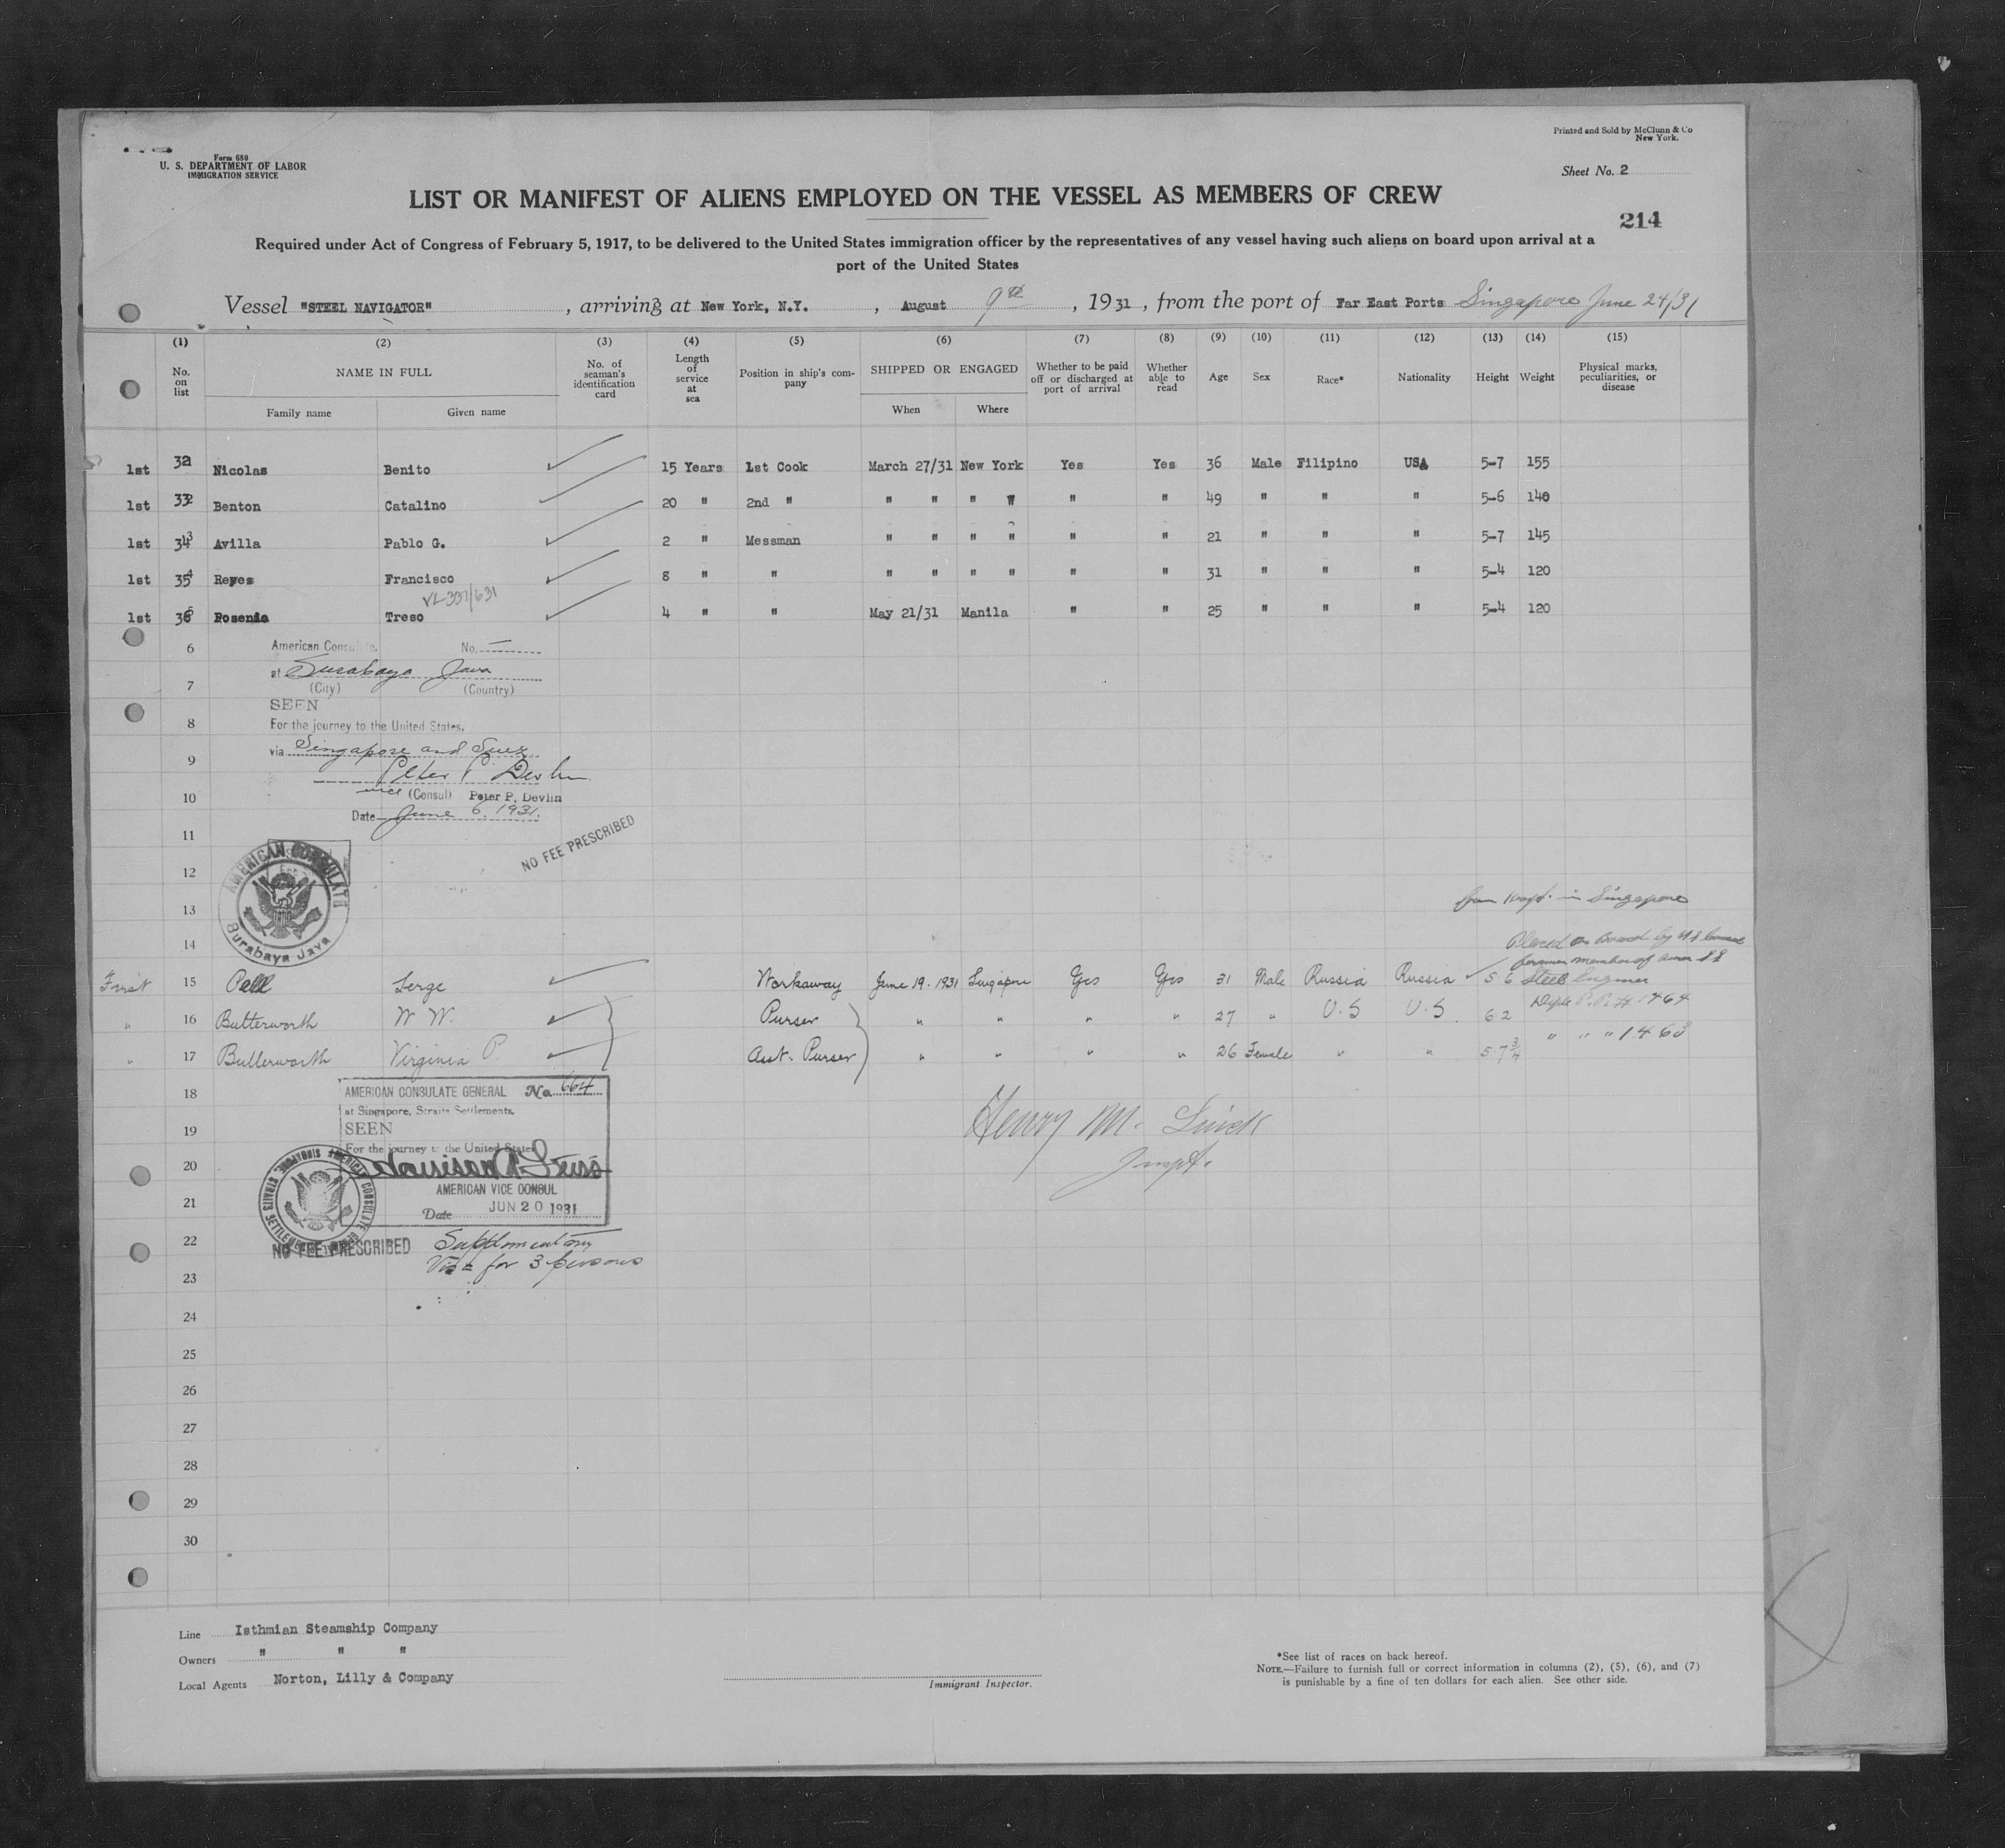 Printed and Sold by McClunn & Co
New York.
Form 680
U. S. DEPARTMENT OF LABOR
IMMIGRATION SERVICE
Sheet No. 2
LIST OR MANIFEST OF ALIENS EMPLOYED ON THE VESSEL AS MEMBERS OF CREW
214
Required under Act of Congress of February 5, 1917, to be delivered to the United States immigration officer by the representatives of any vessel having such aliens on board upon arrival at a
port of the United States
Vessel "STEEL NAVIGATOR", arriving at New York, N.Y., August 9th, 1931, from the port of Far East Ports Singapore June 24/31
(1) (2) (3) (4) (5) (6) (7) (8) (9) (10) (11) (12) (13) (14) (15)
No. on list NAME IN FULL No. of seaman's identification card Length of service at sea Position in ship's company SHIPPED OR ENGAGED Whether to be paid off or discharged at port of arrival Whether able to read Age Sex Race* Nationality Height Weight Physical marks, peculiarities, or disease
Family name Given name When Where
1st 32 Nicolas Benito 15 Years 1st Cook March 27/31 New York Yes Yes 36 Male Filipino USA 5-7 155
1st 33 Benton Catalino 20 " 2nd " " " " " " " 49 " " " 5-6 140
1st 34 3 Avilla Pablo G. 2 " Messman " " " " " " 21 " " " 5-7 145
1st 35 4 Reyes Francisco 8 " " " " " " " " 31 " " " 5-4 120
1st 36 5 Rosenia Treso 4 " " May 21/31 Manila " " 25 " " " 5-4 120
6 American Consulate. No.
at Surabaya Java
7 (City) (Country)
SEEN
8 For the journey to the United States,
via Singapore and Suez
9 Peter P. Devlin
10 vice (Consul) Peter P. Devlin
Date June 6, 1931.
11 NO FEE PRESCRIBED
12 AMERICAN CONSULATE
13 in Singapore
Surabaya Java
14 Placed on board by US Consul
former member of SS
First 15 Pell Serge Workaway June 19. 1931 Singapore Yes Yes 31 Male Russia Russia 5 6 Steel
" 16 Butterworth W W. Purser " " " " 27 " U.S U.S. 6.2 P.P. # 1464
" 17 Butterworth Virginia P. Asst. Purser " " " " 26 Female " " 5.7 3/4 " " " 1463
18 AMERICAN CONSULATE GENERAL No. 664
at Singapore, Straits Settlements.
19 SEEN Henry M.
For the journey to the United States
20 Inspt.
AMERICAN VICE CONSUL
21 Date JUN 20 1931
AMERICAN CONSULATE GENERAL SINGAPORE, STRAITS SETTLEMENTS
22 NO FEE PRESCRIBED Supplementary
Visa for 3 persons
23
24
25
26
27
28
29
30
Line Isthmian Steamship Company
Owners " " "
Local Agents Norton, Lilly & Company
Immigrant Inspector.
*See list of races on back hereof.
NOTE.—Failure to furnish full or correct information in columns (2), (5), (6), and (7)
is punishable by a fine of ten dollars for each alien. See other side.